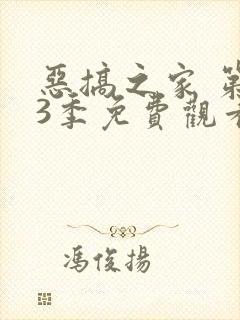 惡搞之家 第
3季免費觀看
馮俊揚